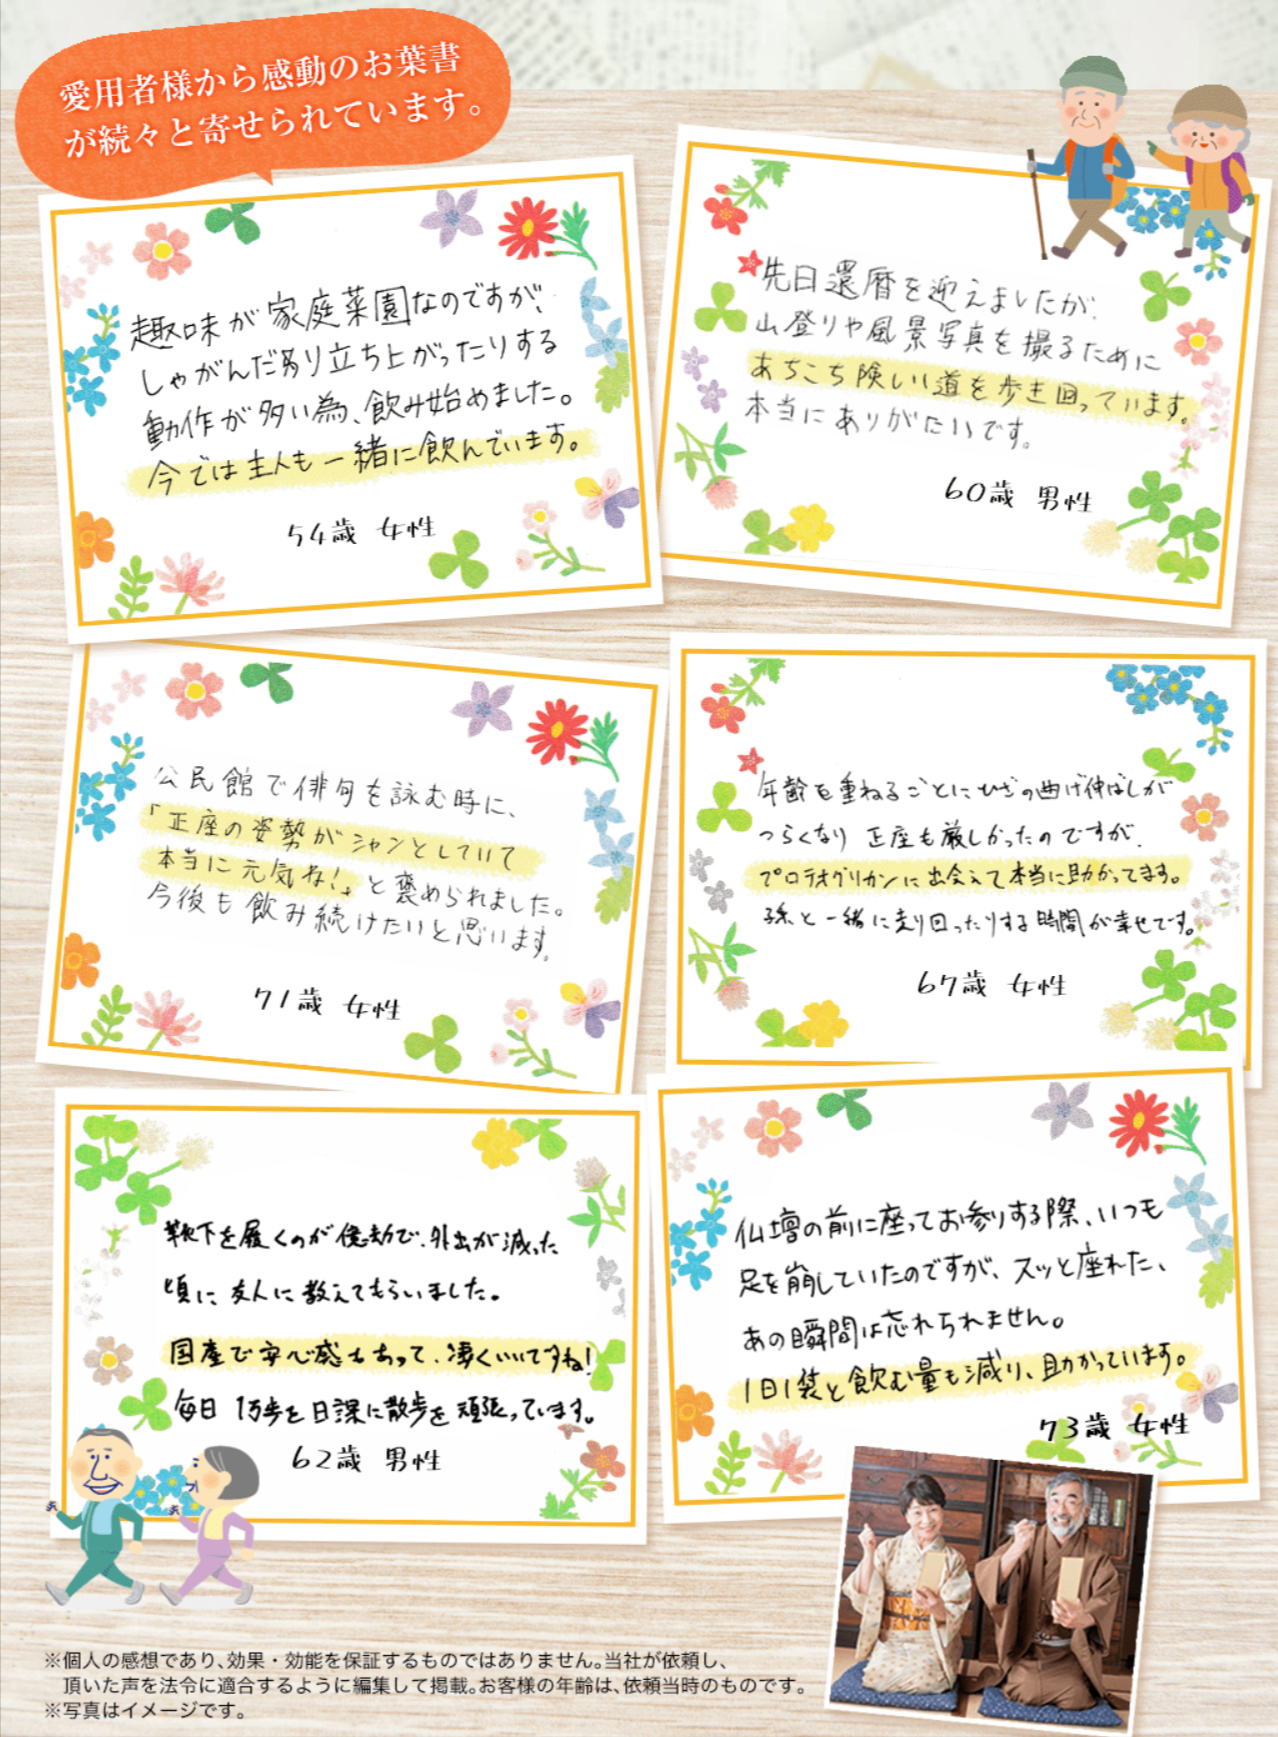 愛用者様から感動のお葉書
が続々と寄せられています。
趣味が家庭菜園なのですが、
しゃがんだり立ち上がったりする
動作が多い為、飲み始めました。
今では主人も一緒に飲んでいます。
54歳 女性
先日還暦を迎えましたが、
山登りや風景写真を撮るために
あちこち険しい道を歩き回っています。
本当にありがたいです。
60歳 男性
公民館で俳句を詠む時に、
「正座の姿勢がシャンとしていて
本当に元気ね!」と褒められました。
今後も飲み続けたいと思います。
71歳 女性
年齢を重ねるごとにひざの曲げ伸ばしが
つらくなり 正座も厳しかったのですが、
プロテオグリカンに出会えて本当に助かってます。
孫と一緒に走り回ったりする時間が幸せです。
67歳 女性
靴下を履くのが億劫で、外出が減った
頃に友人に教えてもらいました。
国産で安心感もあって、凄くいいですね!
毎日 1万歩を日課に散歩を頑張っています。
62歳 男性
仏壇の前に座ってお参りする際、いつも
足を崩していたのですが、スッと座れた、
あの瞬間は忘れられません。
1日1袋と飲む量も減り、助かっています。
73歳 女性
※個人の感想であり、効果・効能を保証するものではありません。当社が依頼し、
頂いた声を法令に適合するように編集して掲載。お客様の年齢は、依頼当時のものです。
※写真はイメージです。